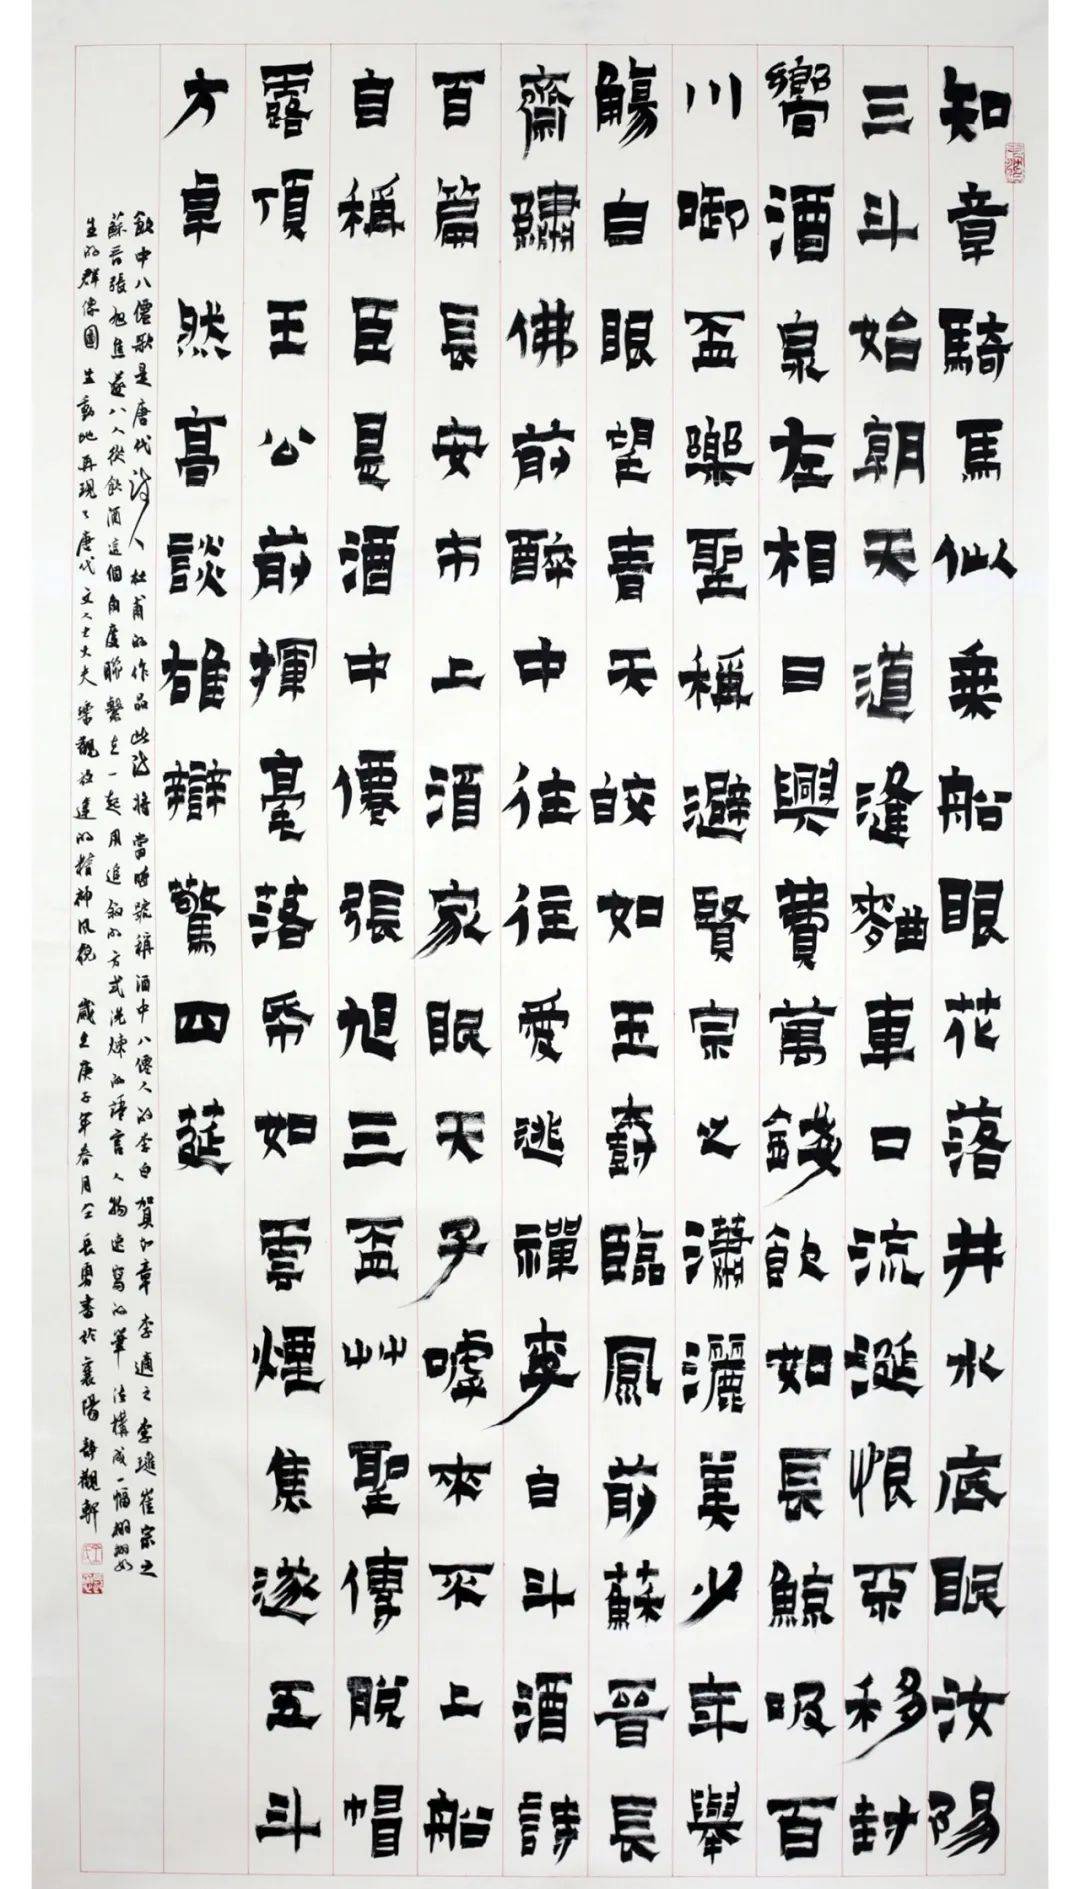 知章騎馬似乘船眼花落井水底眠汝陽
三斗始朝天道逢麯車口流涎恨不移封
嚮酒泉左相日興費萬錢飲如長鯨吸百
川啣盃樂聖稱避賢宗之瀟灑美少年舉
觴白眼望青天皎如玉樹臨風前蘇晉長
齋繡佛前醉中往往愛逃禪李白斗酒詩
百篇長安市上酒家眠天子嘑來不上船
自稱臣是酒中僊張旭三盃艸聖傳脫帽
露頂王公前揮毫落帋如雲煙焦遂五斗
方卓然高談雄辯驚四筵
飲中八僊歌是唐代詩人杜甫的作品此詩將當時號稱酒中八僊人的李白賀知章李適之李璡崔宗之
蘇晉張旭焦遂八人從飲酒這個角度聯繫在一起用追敘的方式洗煉的語言人物速寫的筆法構成一幅栩栩如
生的群像圖生動地再現了唐代文人士大夫樂觀放達的精神風貌歲在庚子年春月仝長勇書於襄陽靜觀軒